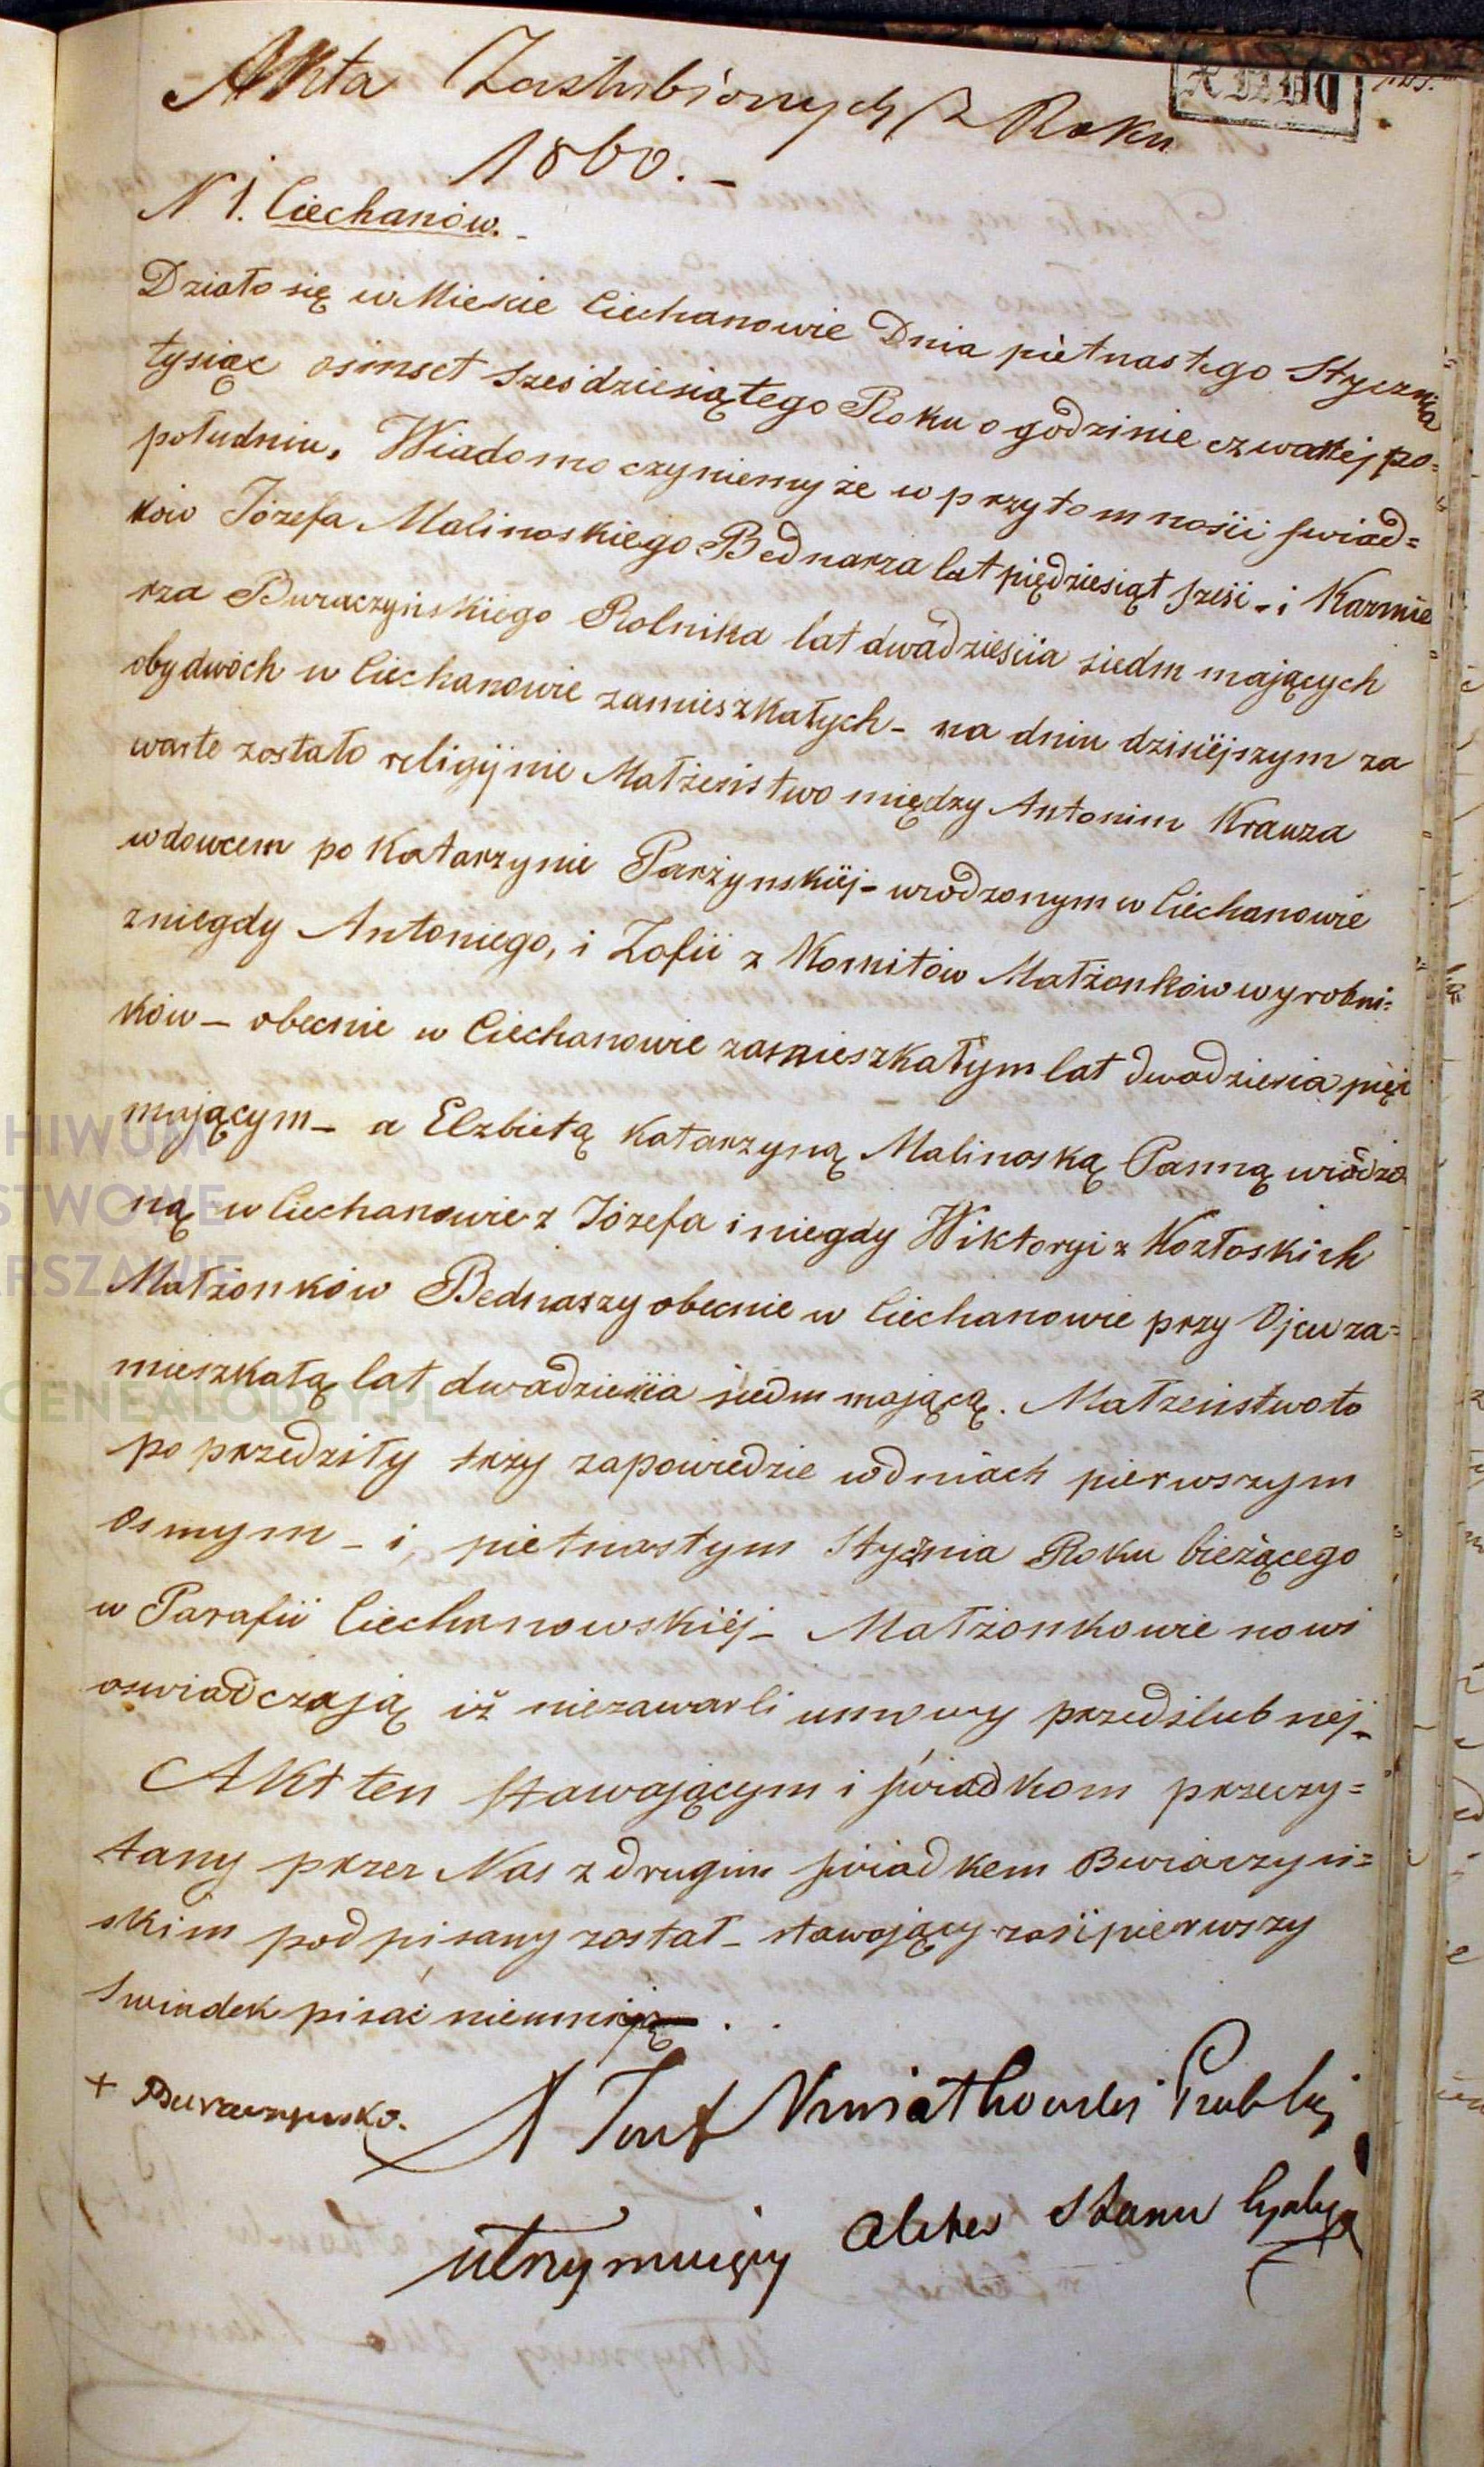 Akta Zaślubionych z Roku
1860. -
N 1. Ciechanów. -
Działo się w Mieście Ciechanowie Dnia piętnastego Stycznia
tysiąc osimset sześdziesiątego Roku o godzinie czwartej po=
południu. Wiadomo czyniemy że w przytomności świad=
ków Józefa Malinoskiego Bednarza lat piędziesiąt sześć - i Kazmie
rza Buraczyńskiego Rolnika lat dwadzieścia siedm mających
obydwóch w Ciechanowie zamieszkałych - na dniu dzisiejszym za
warte zostało religijnie Małżeństwo między Antonim Krauza
wdowcem po Katarzynie Parzynskiéj - urodzonym w Ciechanowie
z niegdy Antoniego, i Zofii z Kornitów Małżonków wyrobni=
ków - obecnie w Ciechanowie zamieszkałym lat dwadzieścia pięć
mającym - a Elzbietą Katarzyną Malinoską Panną urodzo
ną w Ciechanowie z Józefa i niegdy Wiktoryi z Kozłoskich
Małżonków Bednaszy obecnie w Ciechanowie przy Ojcu za=
mieszkałą lat dwadzieścia siedm mającą. Małżeństwo to
poprzedziły trzy zapowiedzie w dniach pierwszym
osmym - i, piętnastym Stycznia Roku bieżącego
w Parafii Ciechanowskiéj - Małżonkowie nowi
oswiadczają iż niezawarli umowy przedślubnej -
Akt ten stawającym i świadkom przeczy=
tany przez Nas z drugim świadkem Buraczyń=
skim podpisany został - stawający zaś i pierwszy
Swiadek pisać nieumieją . .
+ Buraczynski.
X Józef Kwiatkowski
utrzymujący Akta Stanu Cywilnego
ARCHIWUM
PAŃSTWOWE
W WARSZAWIE
GENEALODZY.PL